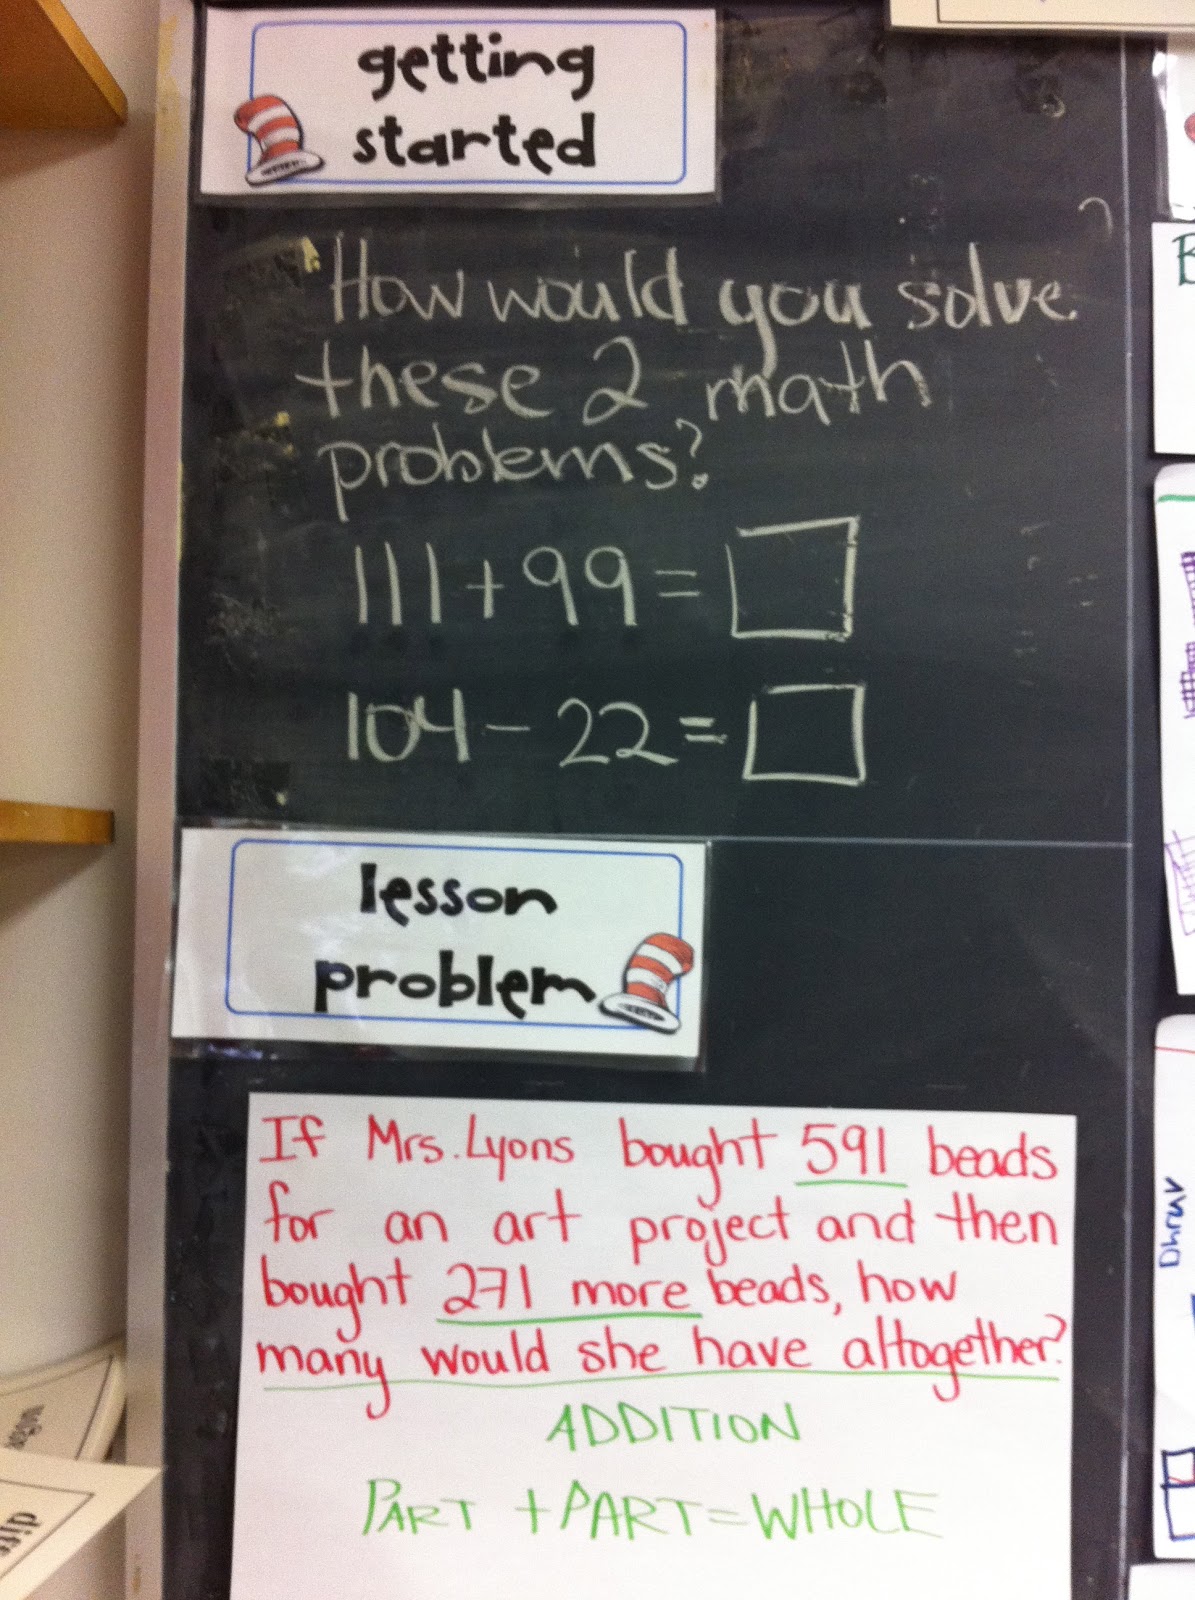 getting
started
How would you solve
these 2 math
problems?
111 + 99 =
104 - 22 =
lesson
problem
If Mrs. Lyons bought 591 beads
for an art project and then
bought 271 more beads, how
many would she have altogether?
ADDITION
PART + PART = WHOLE
Dhruv
diff